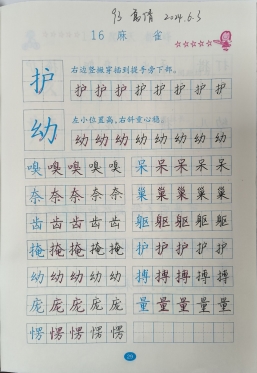 高倩 2024.6.3
16 麻 雀
护 右边竖撇穿插到提手旁下部。
护 护 护 护 护 护 护 护
幼 左小位置高,右斜重心稳。
幼 幼 幼 幼 幼 幼 幼 幼
嗅 嗅 嗅 嗅 嗅 呆 呆 呆 呆 呆
奈 奈 奈 奈 奈 巢 巢 巢 巢 巢
齿 齿 齿 齿 齿 躯 躯 躯 躯 躯
掩 掩 掩 掩 掩 护 护 护 护 护
幼 幼 幼 幼 幼 搏 搏 搏 搏 搏
庞 庞 庞 庞 庞 量 量 量 量 量
愣 愣 愣 愣 愣
29